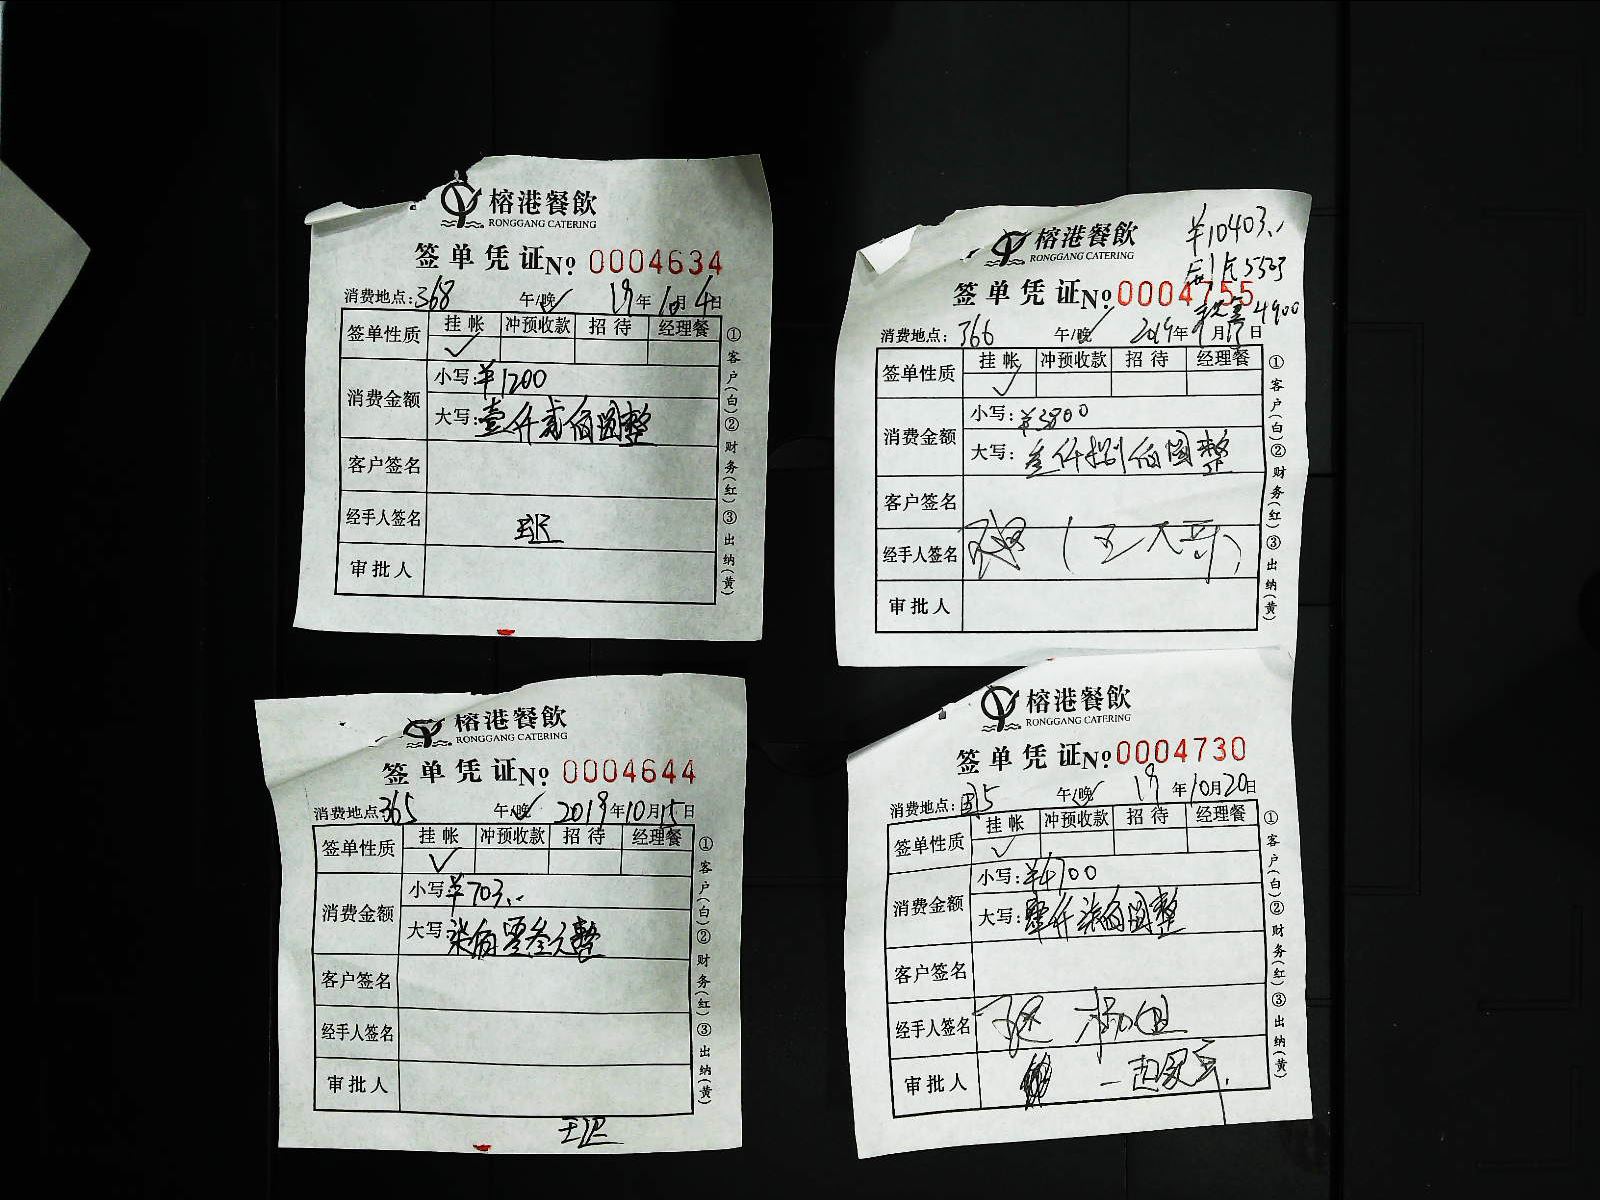 榕港餐飲
RONGGANG CATERING
签单凭证№ 0004634
消费地点:368 午/晚✓ 19年10月4日
签单性质 挂帐 冲预收款 招待 经理餐
✓
消费金额 小写:¥1200
大写:壹仟贰佰圆整
客户签名
经手人签名
审批人
①客户(白)②财务(红)③出纳(黄)
榕港餐飲
RONGGANG CATERING
¥10403..
5503
4900
签单凭证№ 0004755
消费地点:366 午/晚✓ 2019年 月 日
签单性质 挂帐 冲预收款 招待 经理餐
✓
消费金额 小写:¥3800
大写:叁仟捌佰圆整
客户签名
经手人签名
审批人
①客户(白)②财务(红)③出纳(黄)
榕港餐飲
RONGGANG CATERING
签单凭证№ 0004644
消费地点:365 午/晚✓ 2019年10月15日
签单性质 挂帐 冲预收款 招待 经理餐
✓
消费金额 小写:¥703..
大写:柒佰零叁元整
客户签名
经手人签名
审批人
①客户(白)②财务(红)③出纳(黄)
榕港餐飲
RONGGANG CATERING
签单凭证№ 0004730
消费地点: 午/晚✓ 19年10月20日
签单性质 挂帐 冲预收款 招待 经理餐
✓
消费金额 小写:¥4700
大写:肆仟柒佰圆整
客户签名
经手人签名
审批人
①客户(白)②财务(红)③出纳(黄)